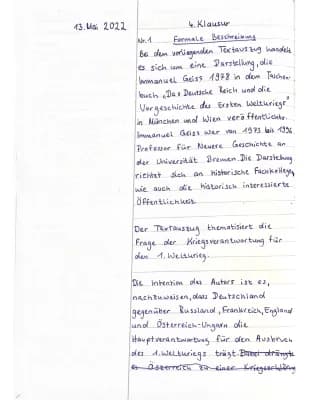 13. Mai 2022
4. Klausur
Nr. 1 Formale Beschreibung
Bei dem vorliegenden Textauszug handelt
es sich um eine Darstellung, die
Immanuel Geiss 1978 in dem Taschen
buch „Das Deutsche Reich und die
Vorgeschichte des Ersten Weltkriegs"
in München und Wien veröffentlichte.
Immanuel Geiss war von 1973 bis 1996
Professor für Neuere Geschichte an
der Universität Bremen. Die Darstellung
richtet sich an historische Fachkollegen,
wie auch die historisch interessierte
Öffentlichkeit.
Der Textauszug thematisiert die
Frage der Kriegsverantwortung für
den 1. Weltkrieg.
Die Intention des Autors ist es,
nachzuweisen, dass Deutschland
gegenüber Russland, Frankreich, England
und Österreich-Ungarn die
Hauptverantwortung für den Ausbruch
des 1. Weltkriegs trägt. Dabei drängte
es Österreich zu einer